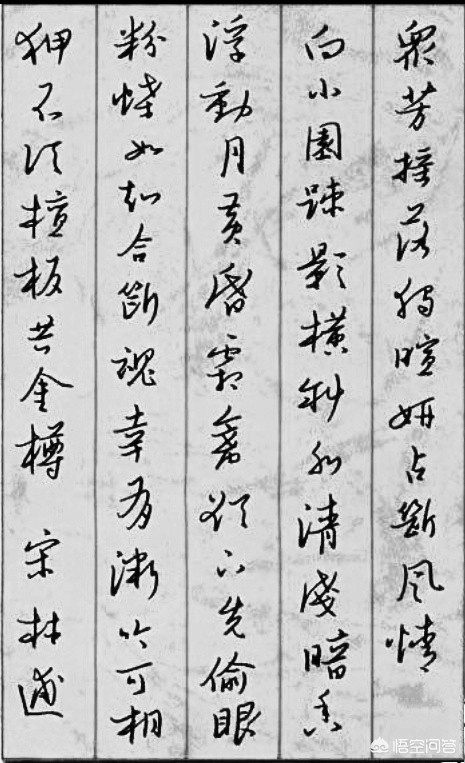 眾芳摇落獨暄妍占斷風情
向小園疎影横斜水清淺暗香
浮動月黄昏霜禽欲下先偷眼
粉蝶如知合斷魂幸有微吟可相
狎不須檀板共金樽 宋林逋
悟空问答